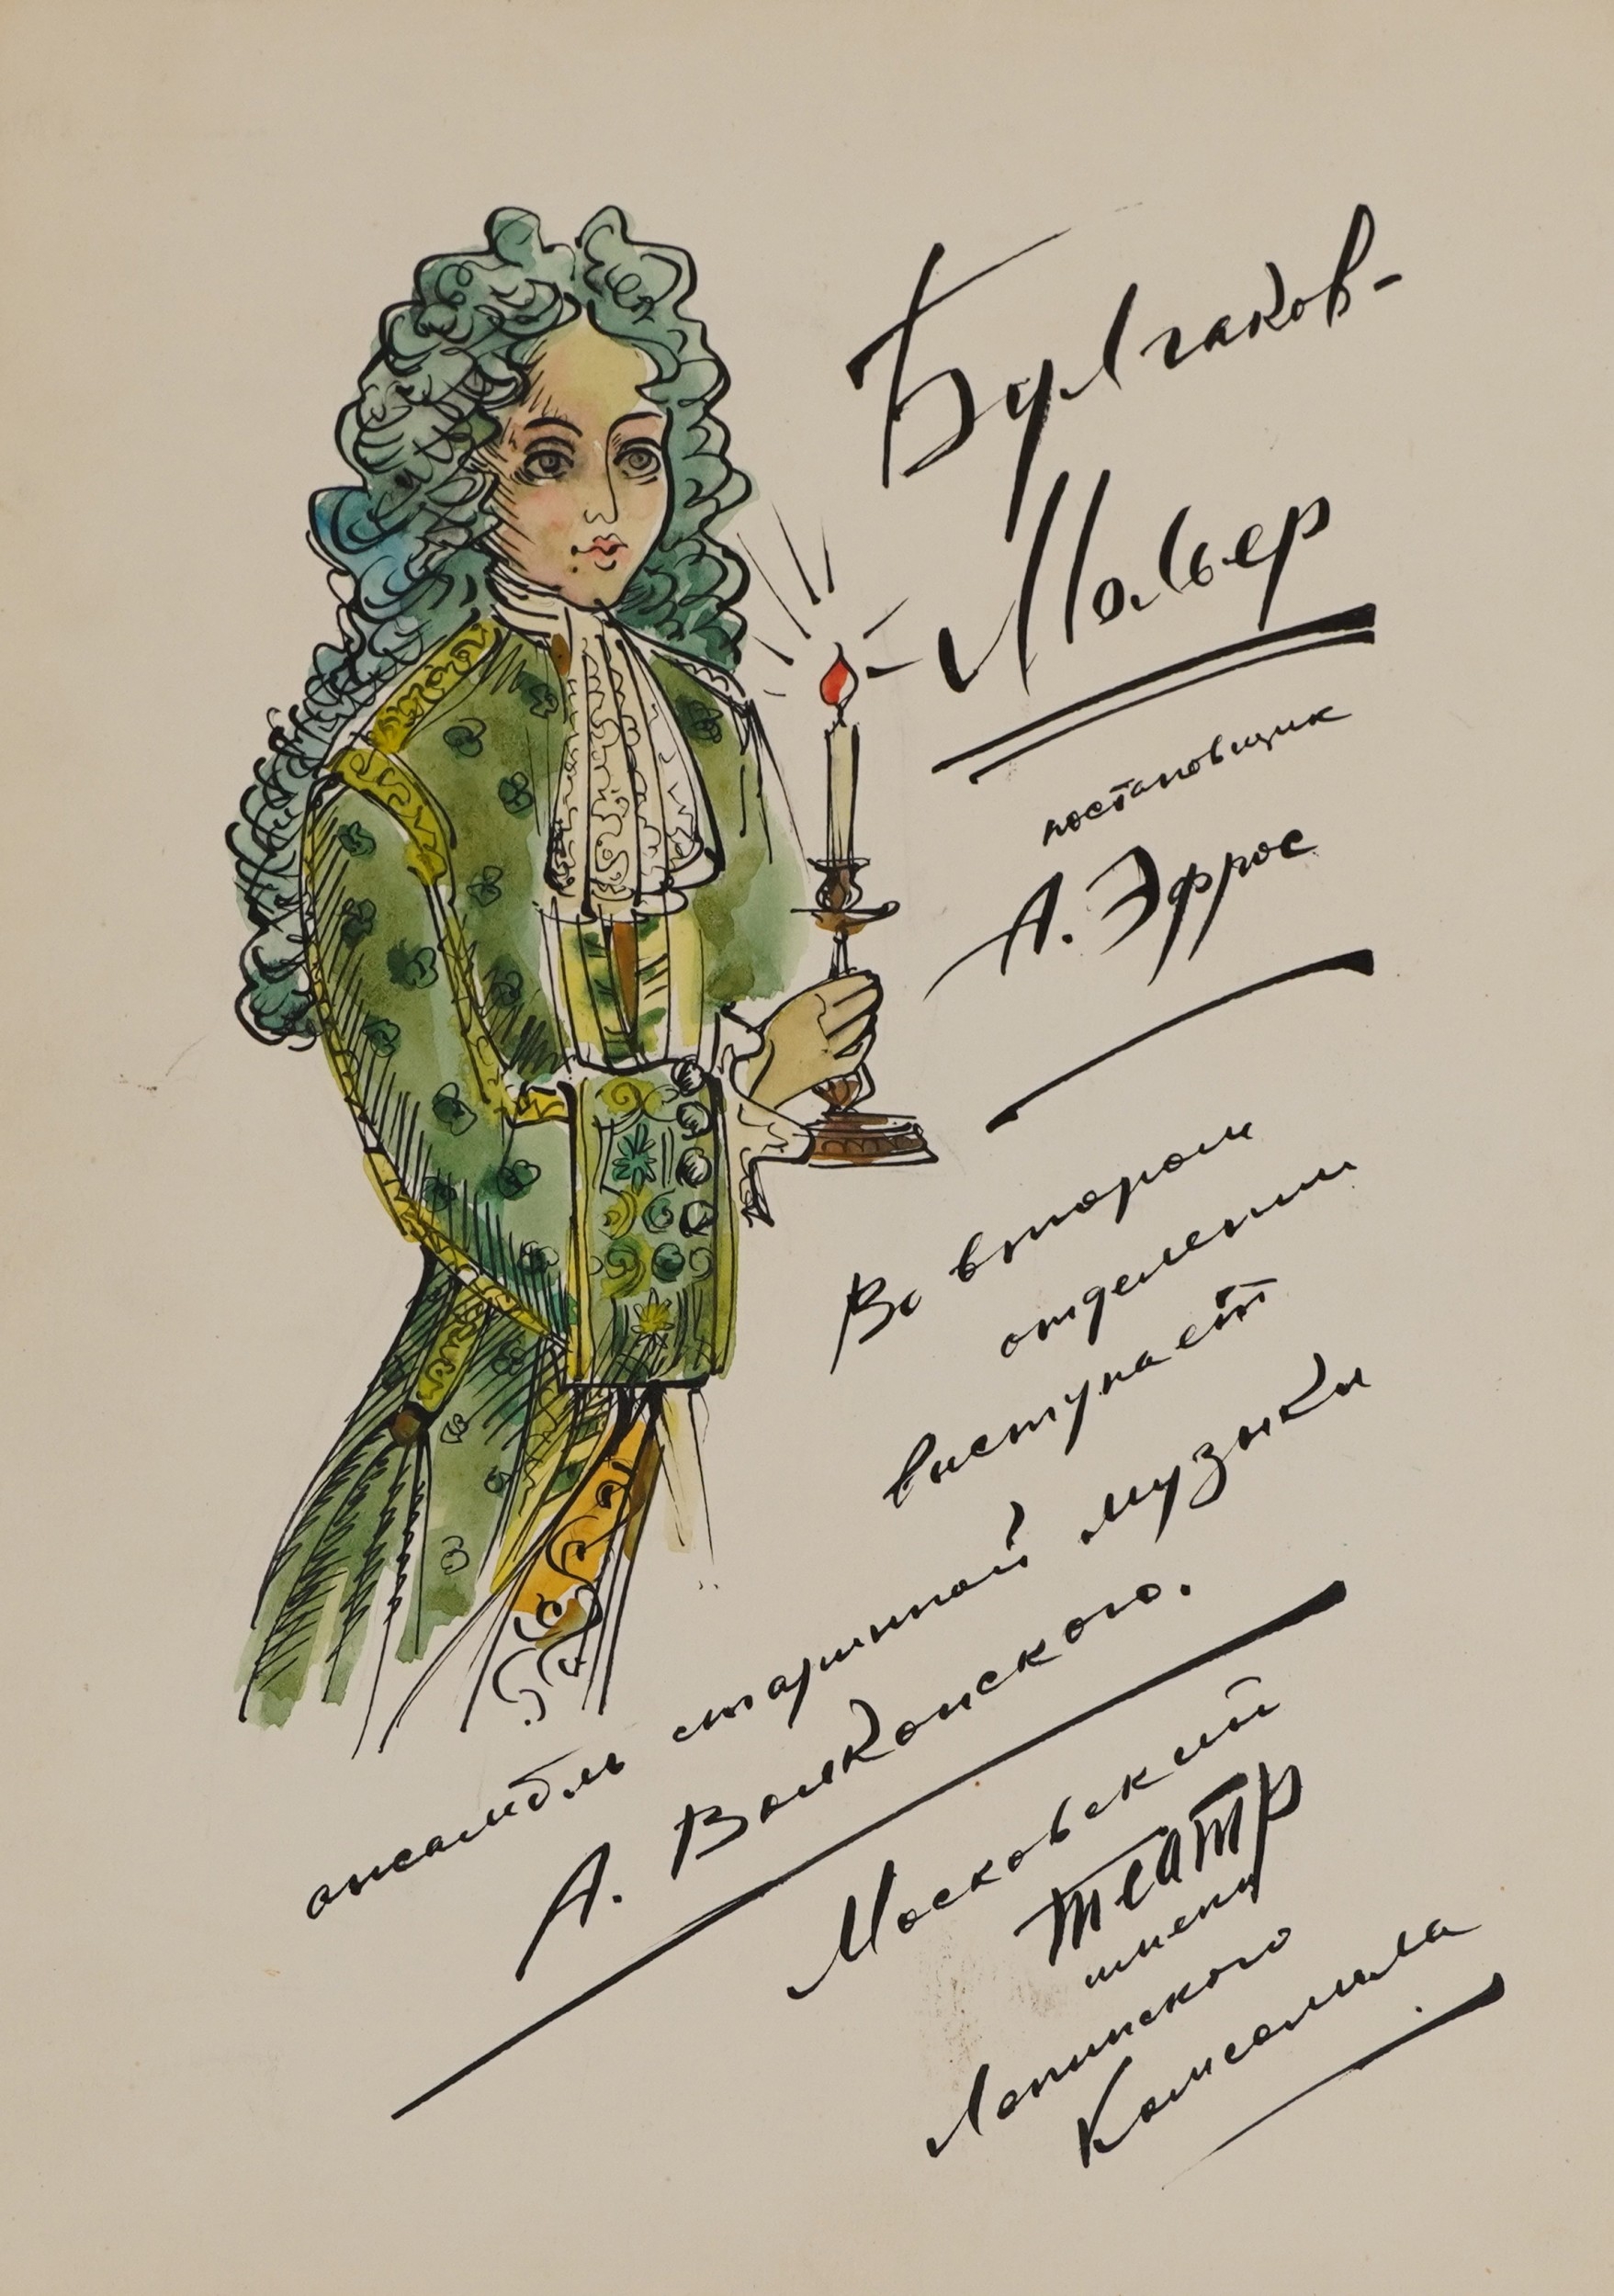 Булгаков-
Мольер
постановщик
А. Эфрос
Во втором
отделении
выступает
ансамбль старинной музыки
А. Волконского.
Московский
театр
имени
Ленинского
Комсомола